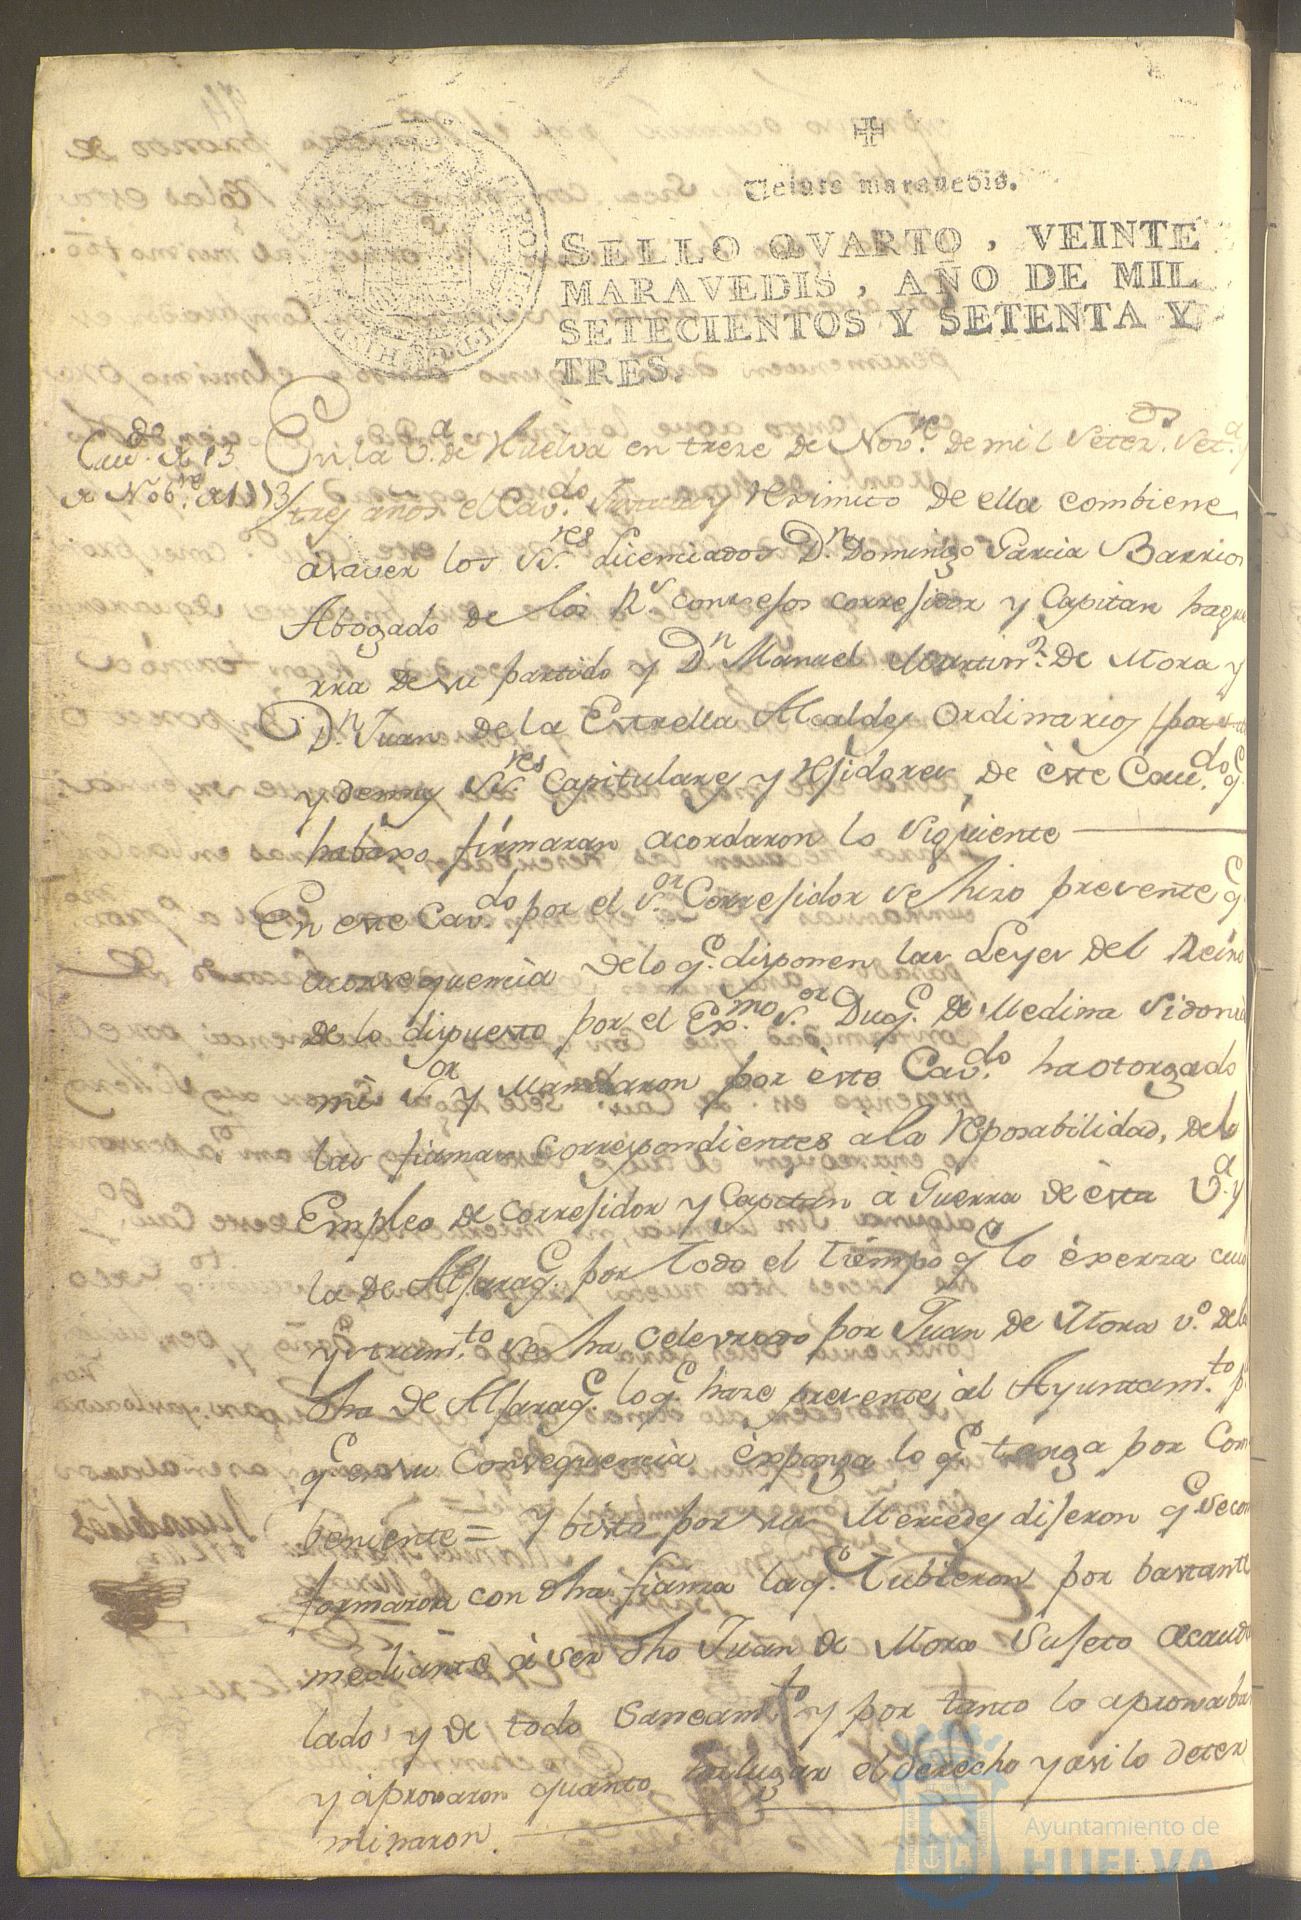 Veinte maravedis.
SELLO QVARTO, VEINTE
MARAVEDIS, AÑO DE MIL
SETECIENTOS Y SETENTA Y
TRES.
Cau.do de 13
de Nob.re de 1773
En la V.a de Huelva en treze de Nov.re de mil Setez.os Set.a y
tres años el Cav.do Justicia y Reximto de ella combiene
asaver los SS.res Licenciados D.n Domingo Garcia Barrios
Abogado de los R.s consejos corregidor y Capitan hague
rra de su partido y D.n Manuel Martin.z de Mora y
D.n Juan de la Estrella Alcaldes Ordinarios por
y demas SS.res Capitulares y Rejidores de este Cau.do q.e
habaxo firmaran acordaron lo siguiente
En este Cav.do por el S.or Corregidor se hizo presente q.e
aconsequencia de lo q.e disponen las Leyes del Reino
de lo dispuesto por el Ex.mo S.or Duq.e de Medina Sidonia
mi S.or y Mandaron por este Cav.do ha otorgado
las fianzas Correspondientes a la reposabilidad, de lo
Empleo de corregidor y Capitan à Guerra de esta V.a y
la de Alfaraq.e por todo el tiempo q.e lo èxerza cuio
ynstrum.to se ha celevrado por Juan de Mora v.o de la
dha de Alfaraq.e lo q.e haze presente al Ayuntam.to p.a
q.e en su Consequencia èxponga lo q.e tenga por Com
beniente = Y bisto por sus Mercedes dijeron q.e se con
formaron con dha fianza la q.e tubieron por bastante
mediante à ser dho Juan de Mora Sujeto acauda
lado y de todo Saneam.to y por tanto lo aprovaban
y àprovaron quanto ha lugar el derecho y asi lo deter
minaron.
Ayuntamiento de
HUELVA